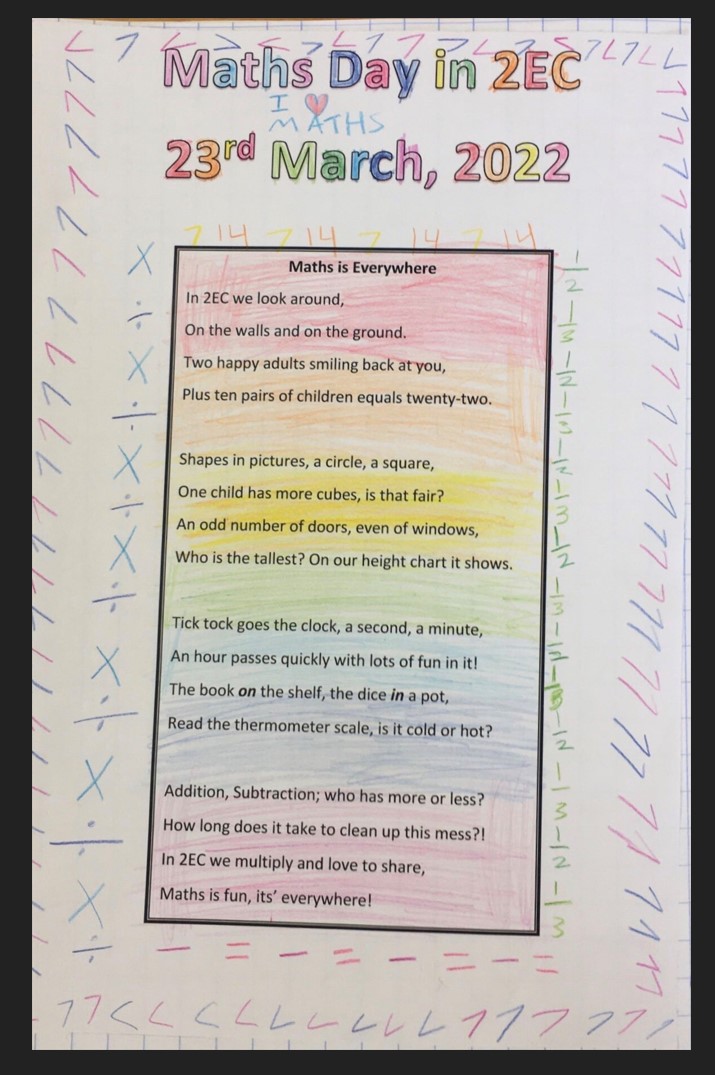 Maths Day in 2EC
I ❤ MATHS
23rd March, 2022
7 14 7 14 7 14 7 14
Maths is Everywhere
In 2EC we look around,
On the walls and on the ground.
Two happy adults smiling back at you,
Plus ten pairs of children equals twenty-two.
Shapes in pictures, a circle, a square,
One child has more cubes, is that fair?
An odd number of doors, even of windows,
Who is the tallest? On our height chart it shows.
Tick tock goes the clock, a second, a minute,
An hour passes quickly with lots of fun in it!
The book on the shelf, the dice in a pot,
Read the thermometer scale, is it cold or hot?
Addition, Subtraction; who has more or less?
How long does it take to clean up this mess?!
In 2EC we multiply and love to share,
Maths is fun, its’ everywhere!
− = − = − = − =